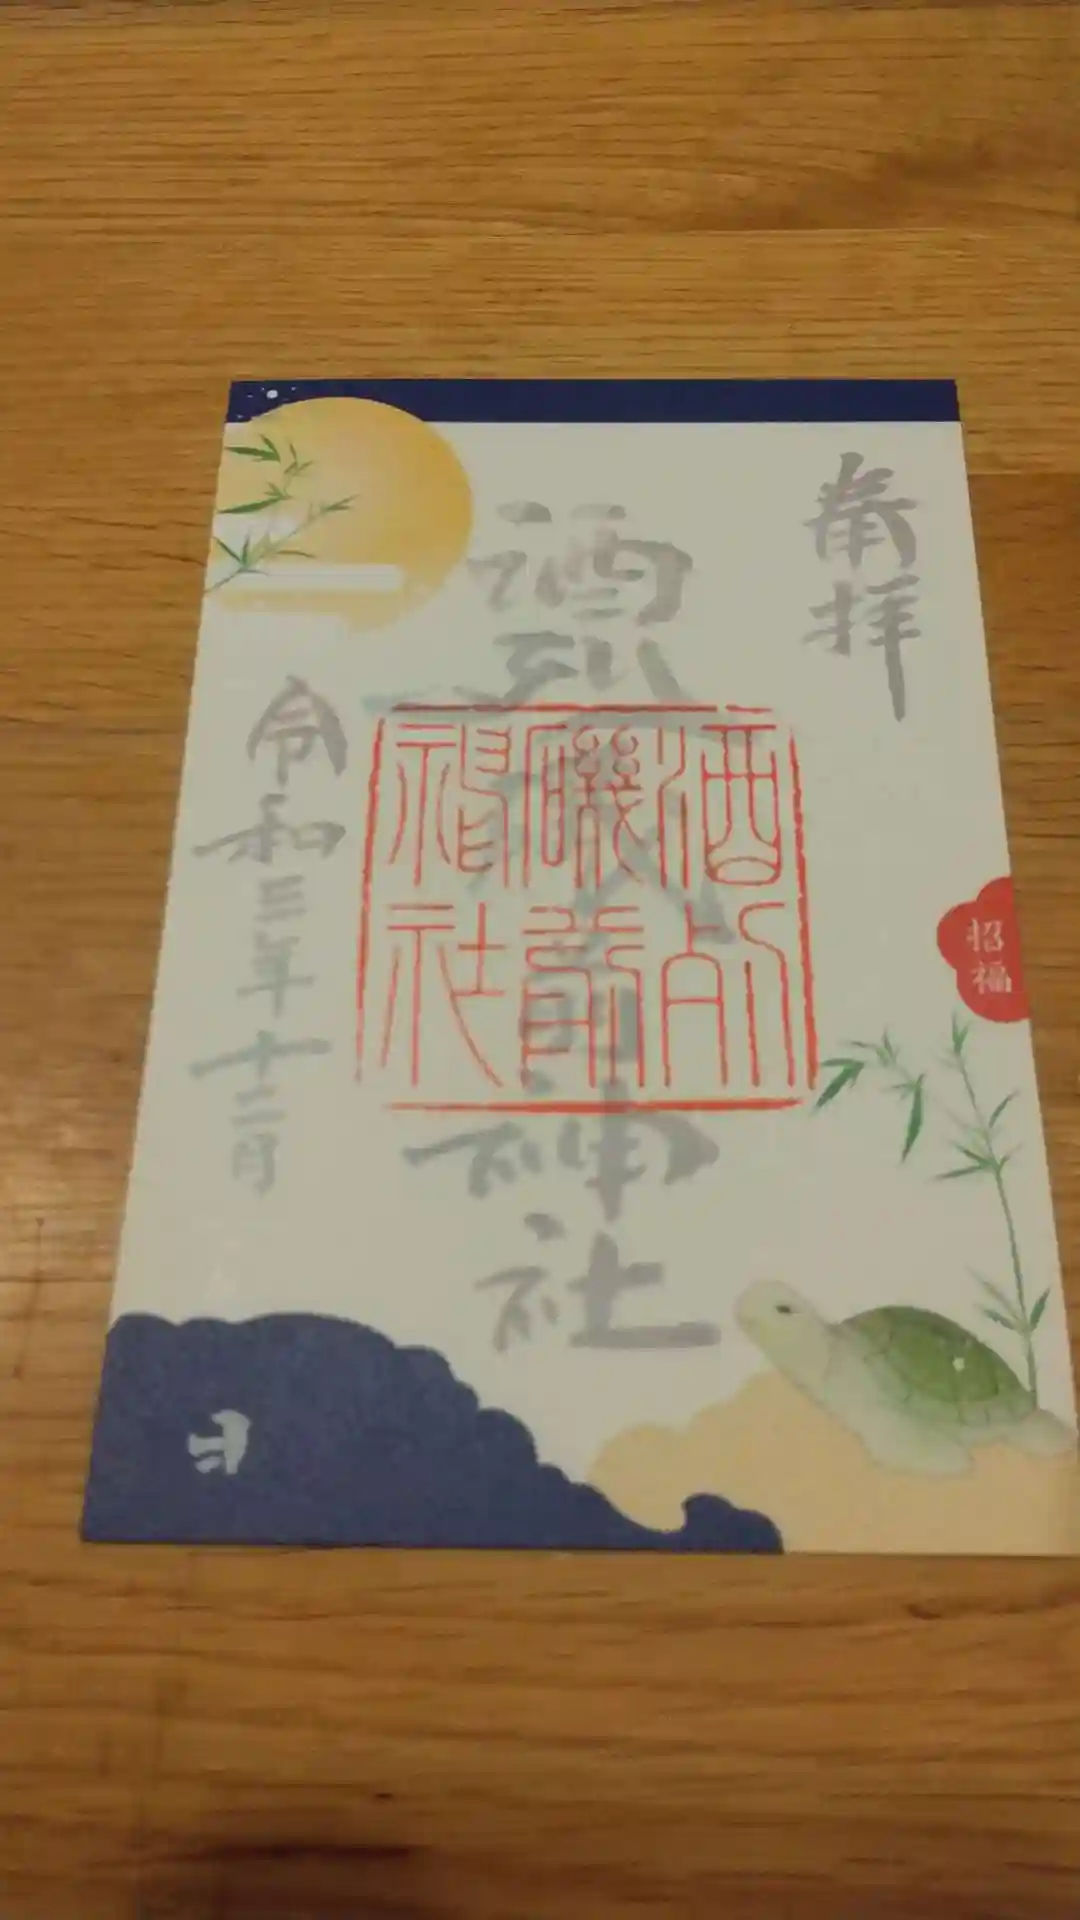 奉拝
招福
酒列磯前神社
酒列
磯前
神社
令和三年十二月
日